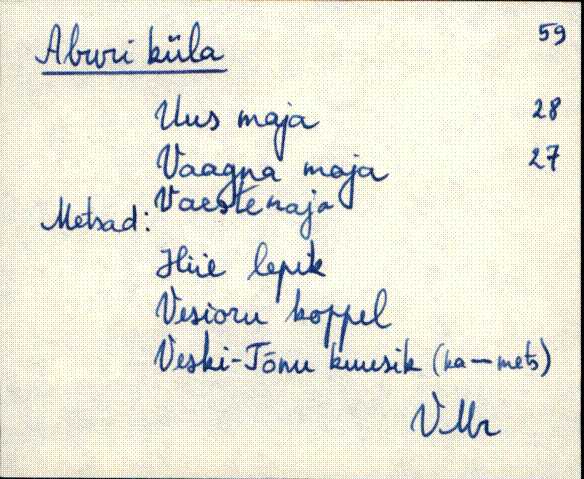 Aburi küla 59
Uus maja 28
Vaagna maja 27
Vaestemaja
Metsad:
Hiie lepik
Vesioru koppel
Veski-Tõnu kuusik (ka — mets)
VMr